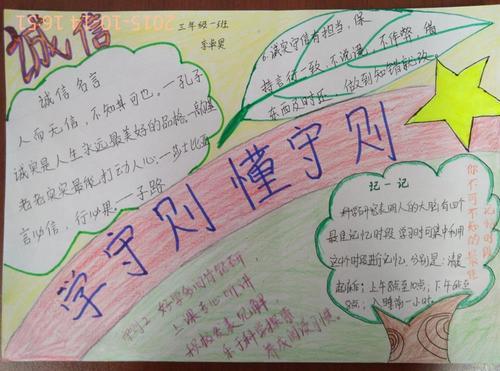 2015-10-14 16:51
诚信
三年级一班
诚信名言
人而无信,不知其可也。—孔子
诚实是人生永远最美好的品格。—高尔基
老老实实最能打动人心。—莎士比亚
言必信,行必果。—子路
6.诚实守信有担当,保
持言行一致,不说谎,不作弊,借
东西及时还,做到知错就改。
学守则 懂守则
守则2 好学多问肯钻研
上课专心听讲
积极发表见解
乐于科学探索
养成阅读习惯。
记一记
科学研究表明人的大脑有四个
最佳记忆时段,学习时可集中利用
这4个时段进行记忆。分别是:清晨
起床后;上午8点至10点;下午6点至
8点;入睡前一小时。
你不可不知的最佳
记忆时段